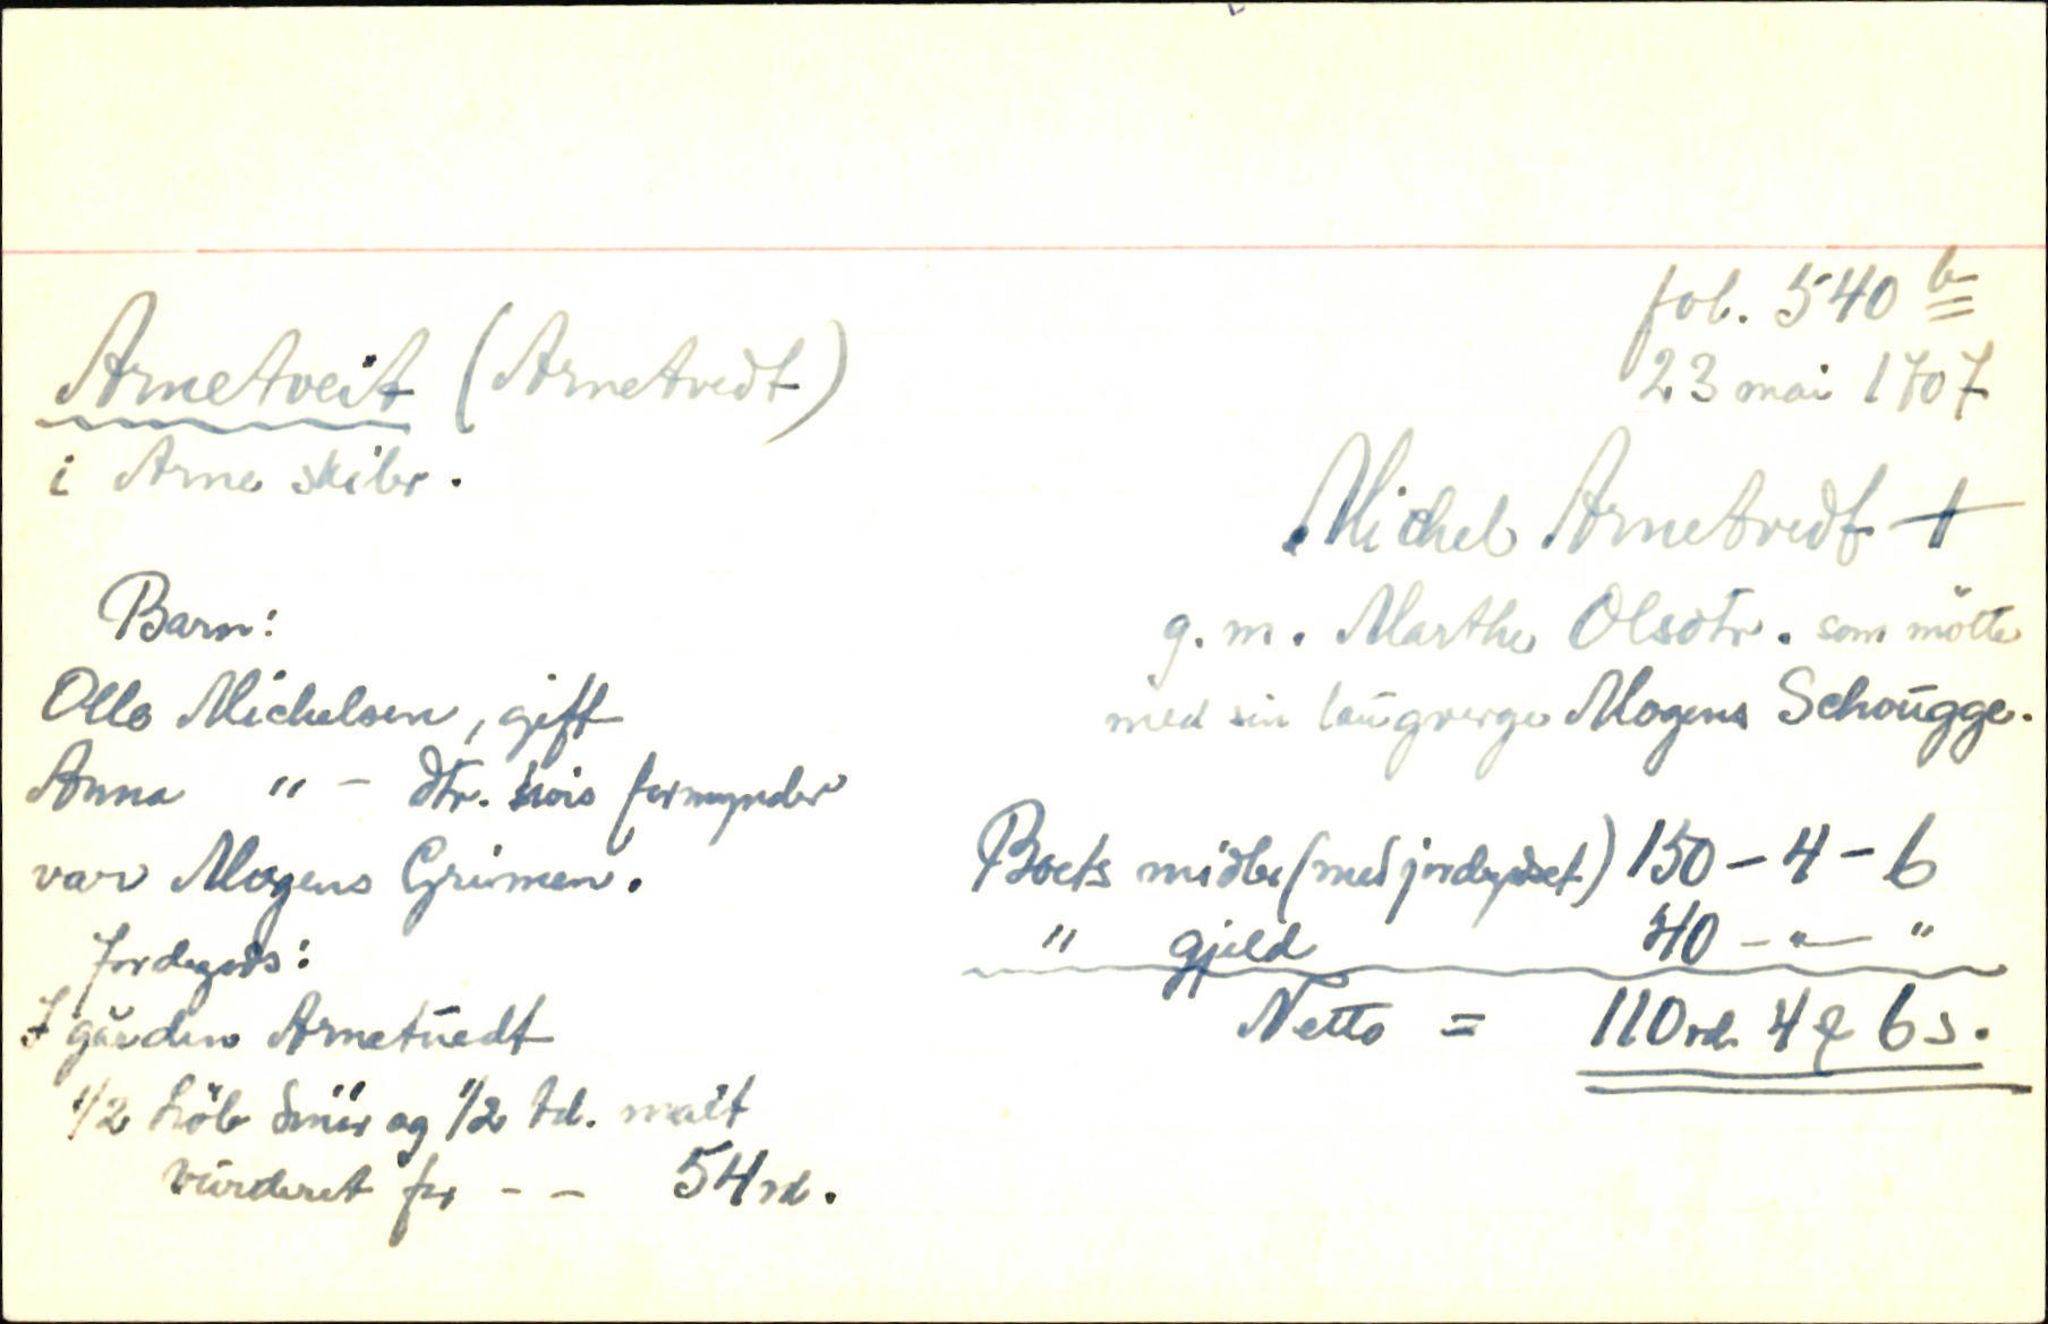 fol. 540 b
23 mai 1707
Arnetveit (Arnetvedt)
i Arne skiber.
Michel Arnetvedt +
g. m. Marthe Olsdtr. som mötte
med sin laugverge Mogens Schougge.
Barn:
Olle Michelsen, gift
Anna " - dtr. hvis formynder
var Mogens Grimen.
Jordegods:
I gården Arnetuedt
1/2 Löb Smör og 1/2 td. malt
vurderet for - - 54 rd.
Boets midler (med jordegodset) 150 - 4 - 6
" gjeld 40 - " - "
Netto = 110 rd. 4 ₰ 6 s.